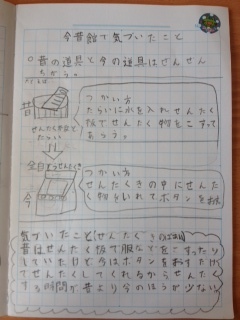 今昔館で気づいたこと
○昔の道具と今の道具はぜんぜん
ちがう。
昔
せんたく板と
たらい
つかい方
たらいに水を入れせんたく
板でせんたく物をこすって
あらう。
全自どうせんたくき
今
つかい方
せんたくきの中にせんた
く物をいれてボタンをおす
気づいたこと
昔はせんたく板で服などをこすったり
していたけど今はボタンをおすだけ
でせんたくしてくれるからせんたく
する時間が昔より今のほうが少ない。